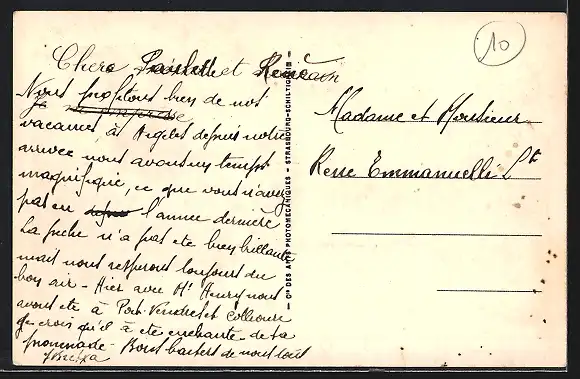 Chers Paulette et Rémi
Nous profitons bien de nos
vacances, à Argeles depuis notre
arrivée nous avons un temps
magnifique, ce que vous n'avez
pas eu l'année dernière
La peche n'a pas ete bien brillante
mais nous respirons toujours du
bon air - Hier avec Mr Henry nous
avons ete à Port-Vendres et Collioure
je crois qu'il à ete enchanté de sa
promenade - Bons baisers de nous tous
10
Cie DES ARTS PHOTOMECANIQUES - STRASBOURG-SCHILTIGHEIM
Madame et Monsieur
Emmanuelle